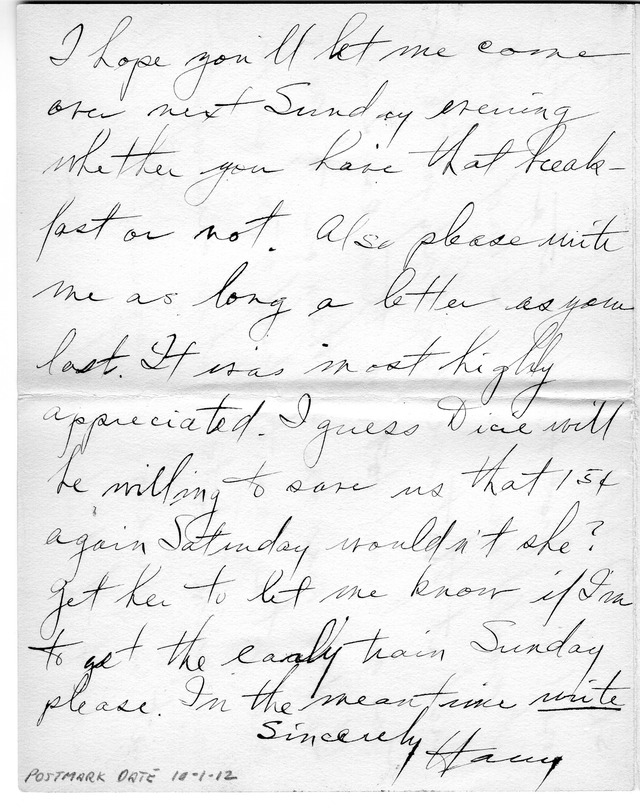 I hope you'll let me come
over next Sunday evening
whether you have that break-
fast or not. Also please write
me as long a letter as your
last. It was most highly
appreciated. I guess Dicie will
be willing to save us that 15¢
again Saturday wouldn't she?
Get her to let me know if I'm
to get the early train Sunday
please. In the meantime write
Sincerely Harry
POSTMARK DATE 10-1-12